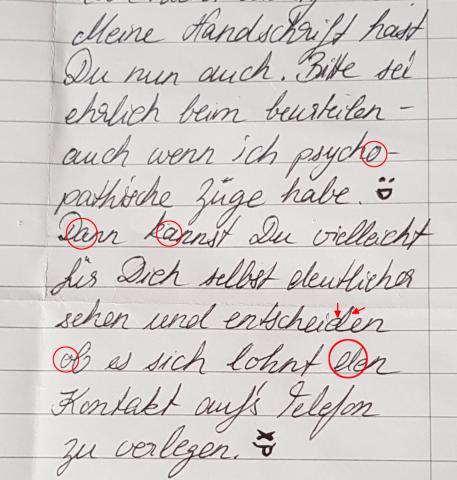 Meine Handschrift hast
Du nun auch. Bitte sei
ehrlich beim beurteilen -
auch wenn ich psycho-
pathische Züge habe. :D
Dann kannst Du vielleicht
für Dich selbst deutlicher
sehen und entscheiden
ob es sich lohnt den
Kontakt auf's Telefon
zu verlegen. xP